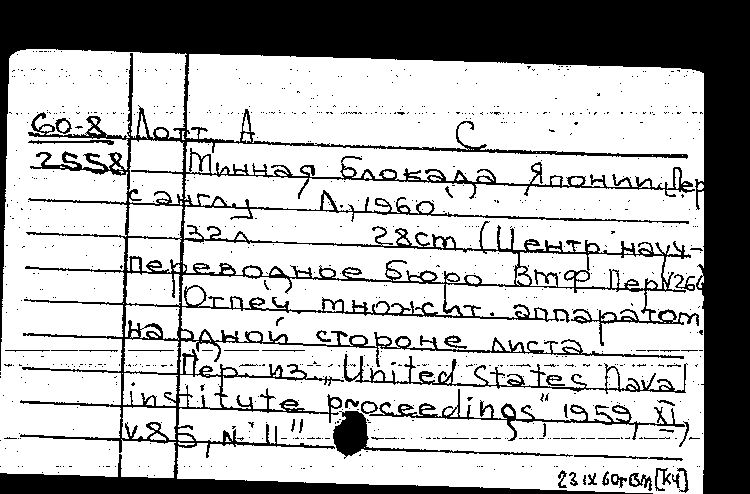 60-8 Лотт, А С
2558 Минная блокада Японии. Пер
с англ. Л., 1960
32 л 28см (Центр. науч-
переводное бюро ВМФ Пер
Отпеч. множит. аппаратом
на одной стороне листа.
Пер. из „United States Naval
institute proceedings", 1959, XI,
v.85, N "11"
23 IX 60г